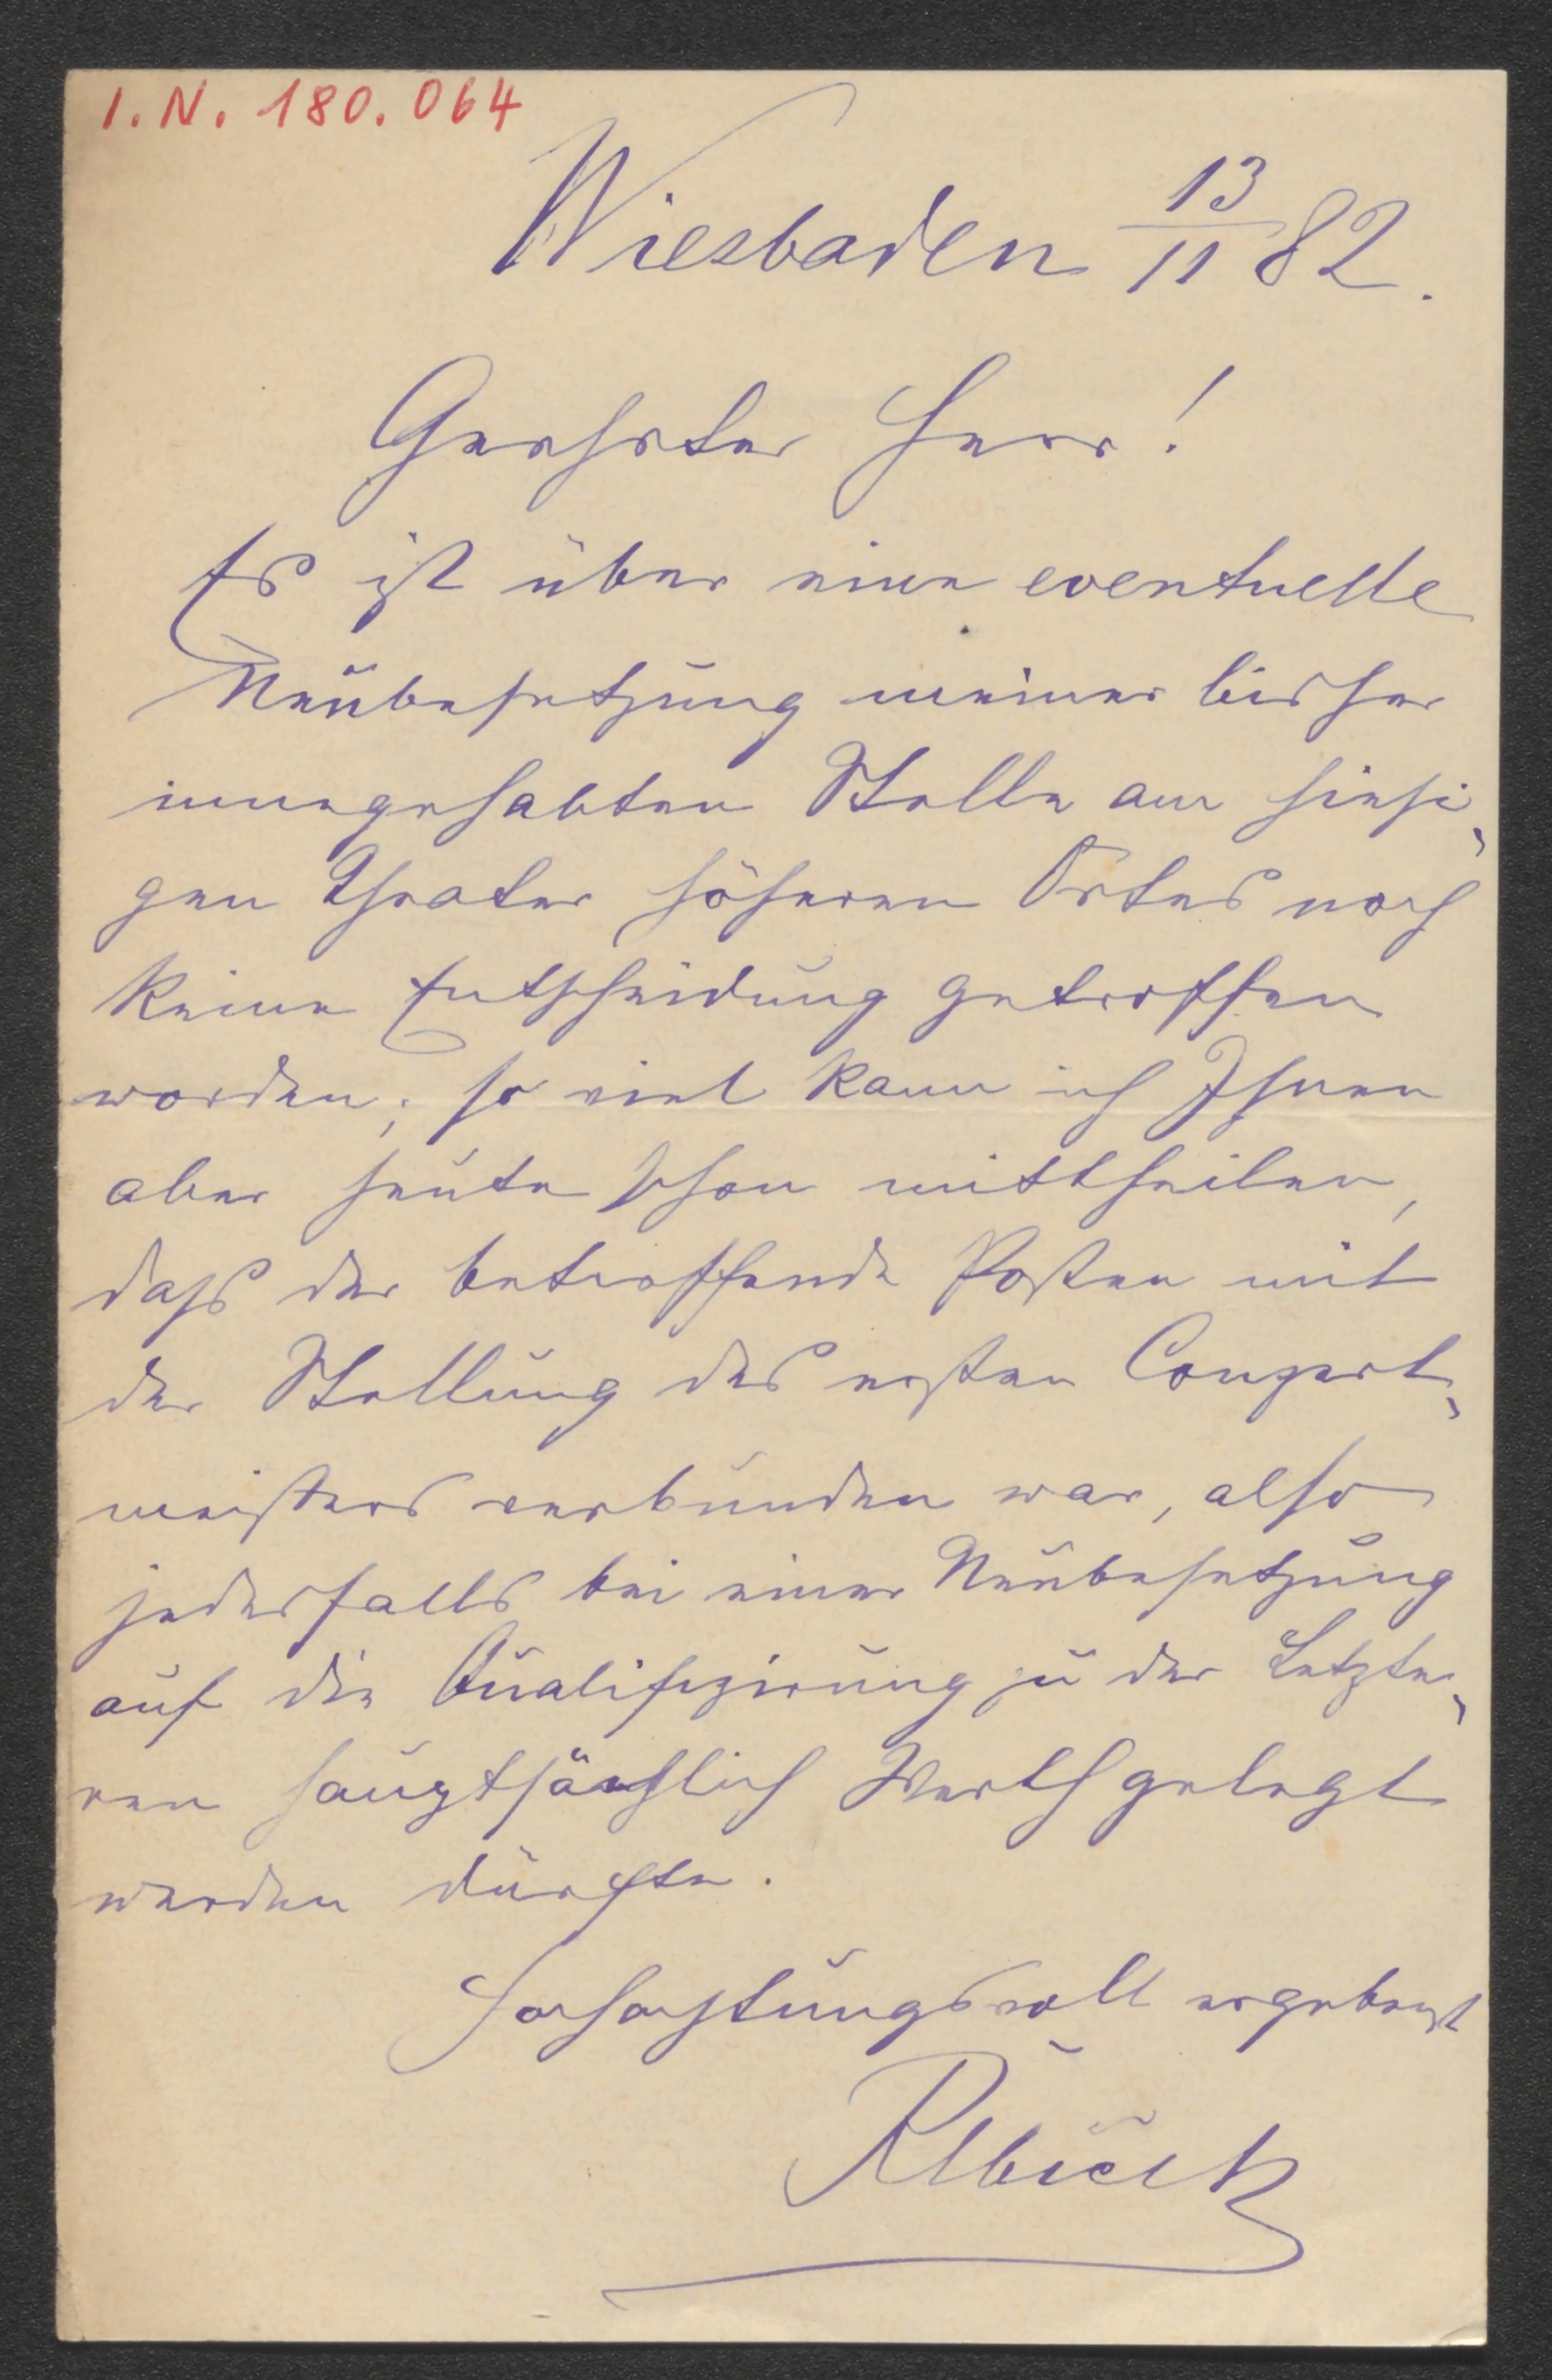 I. N. 180.064
Wiesbaden 13/11 82.
Geehrter Herr!
Es ist über eine eventuelle
Neubesetzung meiner bisher
innegehabten Stelle am hiesi-
gen Theater höheren Ortes noch
keine Entscheidung getroffen
worden; so viel kann ich Ihnen
aber heute schon mittheilen,
daß der betreffende Posten mit
der Stellung des ersten Conzert-
meisters verbunden war, also
jedesfalls bei einer Neubesetzung
auf die Qualifizirung zu der Letzte-
ren hauptsächlich Werth gelegt
werden dürfte.
Hochachtungsvoll ergebenst